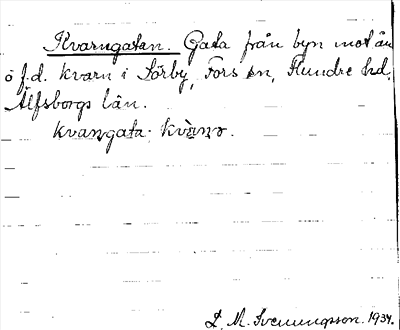 Kvarngatan. Gata från byn mot ån
o f.d. kvarn i Sörby, Fors sn, Flundre hd,
Älfsborgs län.
kvarngata. kvano.
L. M. Svenungsson. 1934.